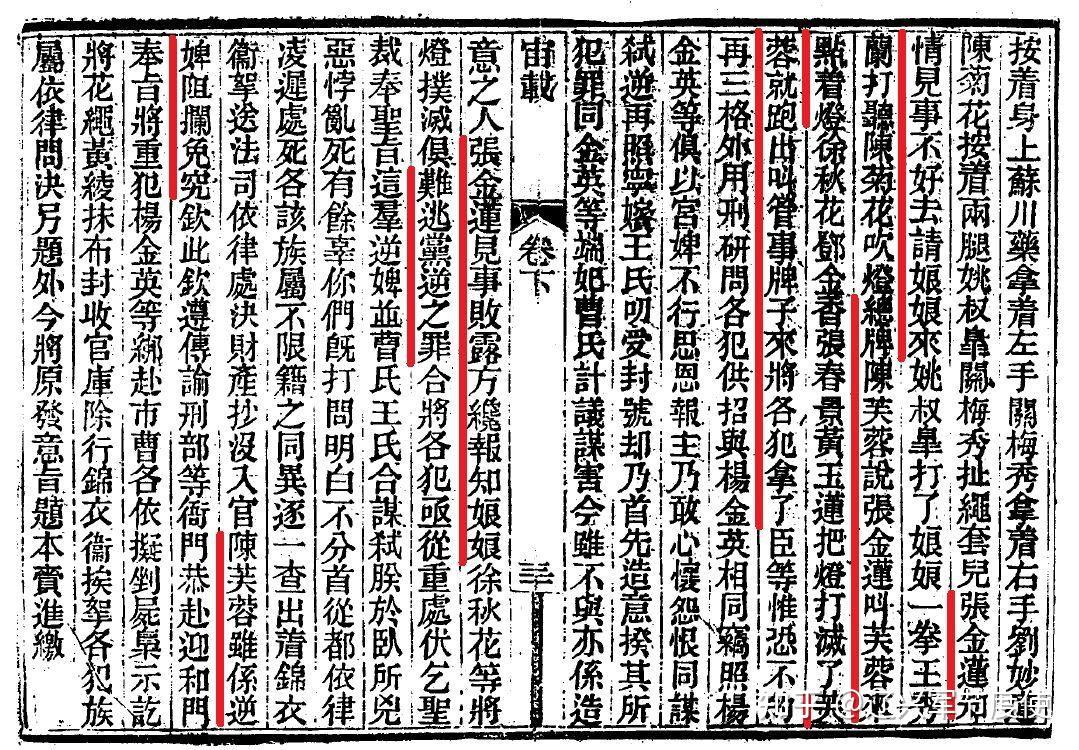 按着身上蘇川藥拿着左手關梅秀拿着右手劉妙
陳菊花按着兩腿姚叔皐關梅秀扯繩套兒張金蓮
情見事不好去請娘娘來姚叔皐打了娘娘一拳王秀
蘭打聽陳菊花吹燈總牌陳芙蓉說張金蓮叫芙蓉來
點着燈徐秋花鄧金香張春景黃玉蓮把燈打滅了芙
蓉就跑出叫管事牌子來將各犯拿了臣等惟恐不
再三格外用刑研問各犯供招與楊金英相同竊照楊
金英等俱以宮婢不行思恩報主乃敢心懷怨恨同謀
弑逆再照寧嬪王氏叨受封號却乃首先造意揆其所
犯罪同金英等端妃曹氏計議謀害今雖不與亦係造
宙載 卷下
意之人張金蓮見事敗露方纔報知娘娘徐秋花等將
燈撲滅俱難逃黨逆之罪合將各犯亟從重處伏乞聖
裁奉聖旨這羣逆婢並曹氏王氏合謀弑朕於臥所兇
惡悖亂死有餘辜你們旣打問明白不分首從都依律
凌遲處死各該族屬不限籍之同異逐一查出着錦衣
衞拏送法司依律處決財產抄沒入官陳芙蓉雖係逆
婢阻攔免究欽此欽遵傳諭刑部等衙門恭赴迎和門
奉旨將重犯楊金英等綁赴市曹各依擬剉屍梟示訖
將花繩黃綾抹布封收官庫除行錦衣衞挨拏各犯族
屬依律問決另題外今將原發意旨題本賫進繳
知乎